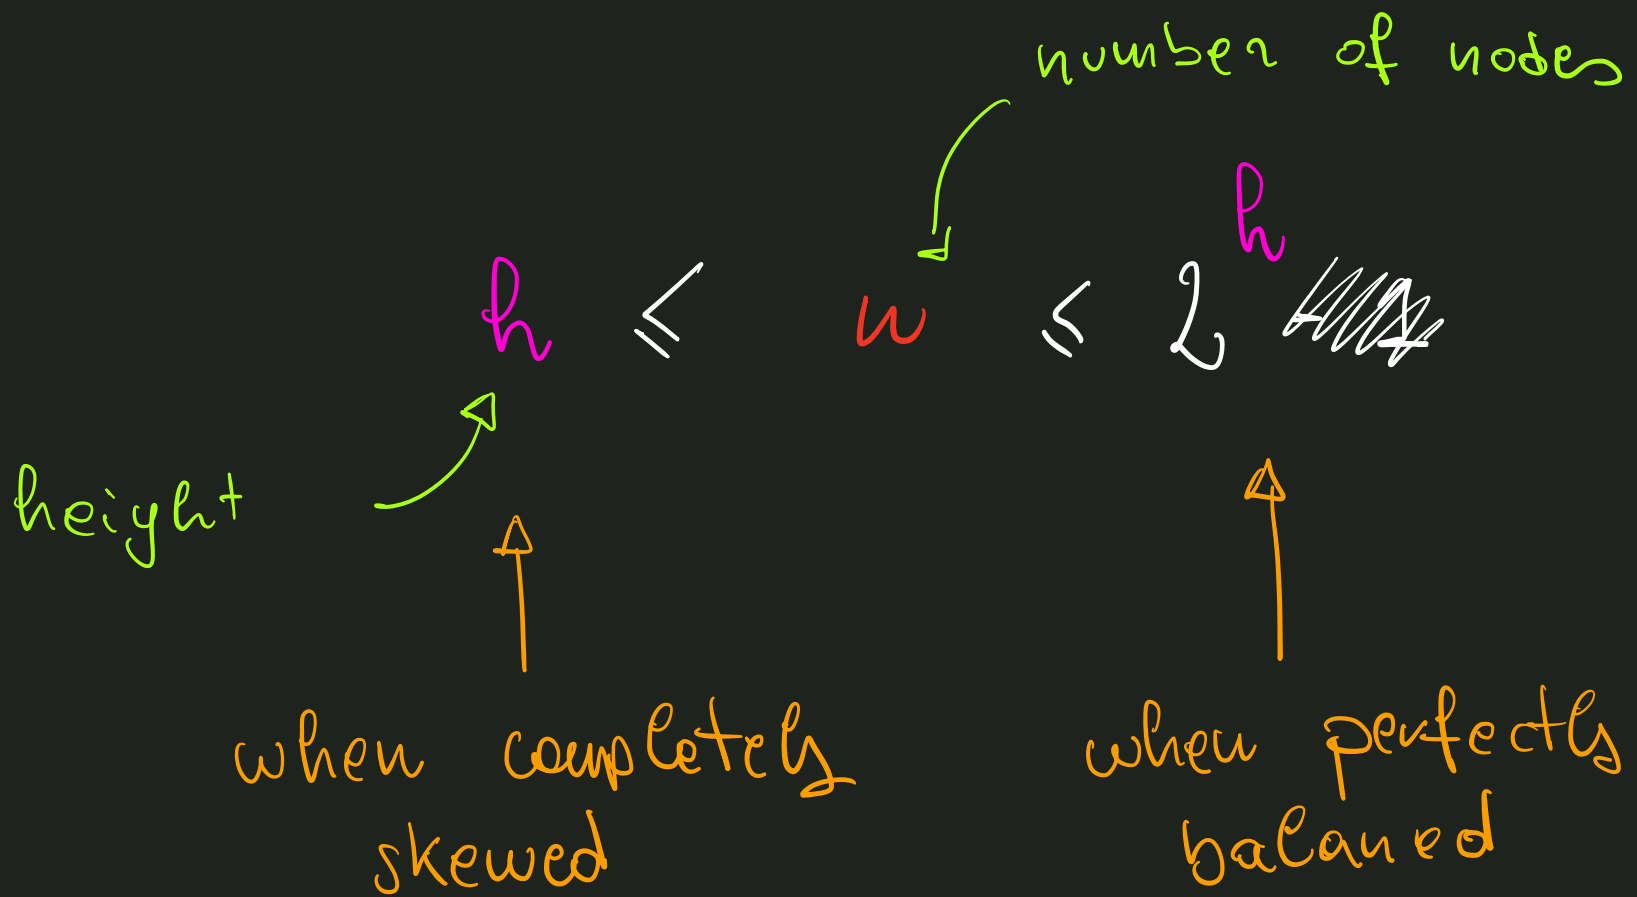 number of nodes
h ≤ n ≤ 2^h
height
when completely
skewed
when perfectly
balanced